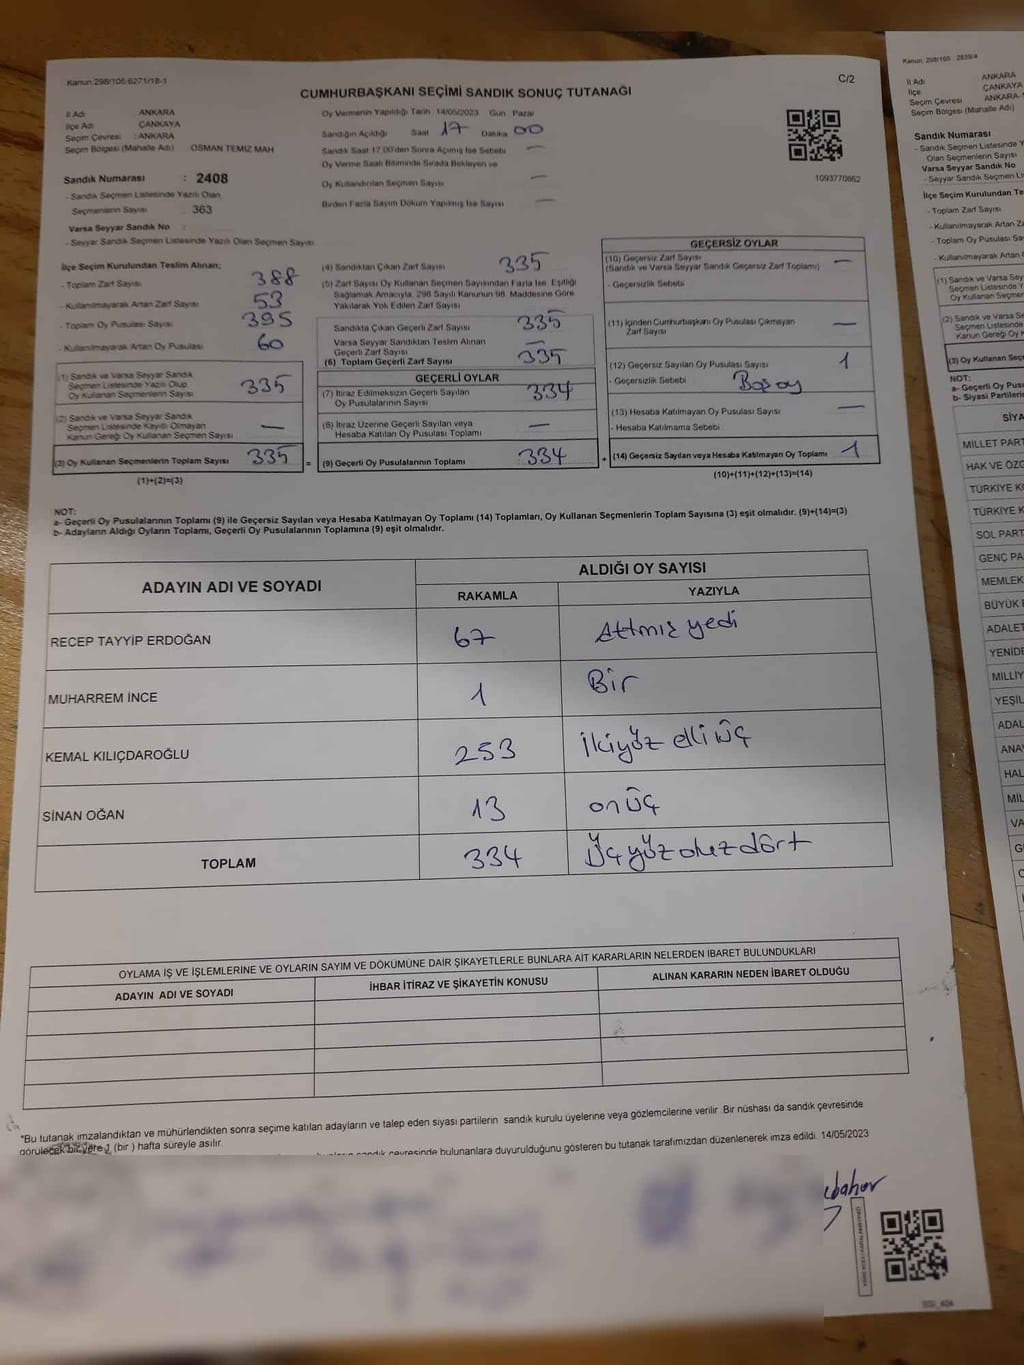 Kanun 298/105-6271/18-1
C/2
CUMHURBAŞKANI SEÇİMİ SANDIK SONUÇ TUTANAĞI
İl Adı ANKARA
İlçe Adı ÇANKAYA
Seçim Çevresi : ANKARA
Seçim Bölgesi (Mahalle Adı) OSMAN TEMİZ MAH
Sandık Numarası : 2408
- Sandık Seçmen Listesinde Yazılı Olan
Seçmenlerin Sayısı 363
Varsa Seyyar Sandık No :
- Seyyar Sandık Seçmen Listesinde Yazılı Olan Seçmen Sayısı
Oy Vermenin Yapıldığı Tarih 14/05/2023 Gün Pazar
Sandığın Açıldığı Saat 17 Dakika 00
Sandık Saat 17.00'den Sonra Açılmış İse Sebebi —
Oy Verme Saati Bitiminde Sırada Bekleyen ve
Oy Kullandırılan Seçmen Sayısı —
Birden Fazla Sayım Döküm Yapılmış İse Sayısı —
1093770662
İlçe Seçim Kurulundan Teslim Alınan;
- Toplam Zarf Sayısı 388
- Kullanılmayarak Artan Zarf Sayısı 53
- Toplam Oy Pusulası Sayısı 395
- Kullanılmayarak Artan Oy Pusulası 60
(1) Sandık ve Varsa Seyyar Sandık
Seçmen Listesinde Yazılı Olup
Oy Kullanan Seçmenlerin Sayısı 335
(2) Sandık ve Varsa Seyyar Sandık
Seçmen Listesinde Kayıtlı Olmayan
Kanun Gereği Oy Kullanan Seçmen Sayısı —
(3) Oy Kullanan Seçmenlerin Toplam Sayısı 335 =
(1)+(2)=(3)
(4) Sandıktan Çıkan Zarf Sayısı 335
(5) Zarf Sayısı Oy Kullanan Seçmen Sayısından Fazla İse, Eşitliği
Sağlamak Amacıyla, 298 Sayılı Kanunun 98. Maddesine Göre
Yakılarak Yok Edilen Zarf Sayısı
Sandıkta Çıkan Geçerli Zarf Sayısı 335
Varsa Seyyar Sandıktan Teslim Alınan
Geçerli Zarf Sayısı —
(6) Toplam Geçerli Zarf Sayısı 335
GEÇERLİ OYLAR
(7) İtiraz Edilmeksizin Geçerli Sayılan
Oy Pusulalarının Sayısı 334
(8) İtiraz Üzerine Geçerli Sayılan veya
Hesaba Katılan Oy Pusulası Toplamı —
(9) Geçerli Oy Pusulalarının Toplamı 334 +
GEÇERSİZ OYLAR
(10) Geçersiz Zarf Sayısı —
(Sandık ve Varsa Seyyar Sandık Geçersiz Zarf Toplamı)
- Geçersizlik Sebebi
(11) İçinden Cumhurbaşkanı Oy Pusulası Çıkmayan
Zarf Sayısı —
(12) Geçersiz Sayılan Oy Pusulası Sayısı 1
- Geçersizlik Sebebi Boş oy
(13) Hesaba Katılmayan Oy Pusulası Sayısı —
- Hesaba Katılmama Sebebi
(14) Geçersiz Sayılan veya Hesaba Katılmayan Oy Toplamı 1
(10)+(11)+(12)+(13)=(14)
NOT:
a- Geçerli Oy Pusulalarının Toplamı (9) ile Geçersiz Sayılan veya Hesaba Katılmayan Oy Toplamı (14) Toplamları, Oy Kullanan Seçmenlerin Toplam Sayısına (3) eşit olmalıdır. (9)+(14)=(3)
b- Adayların Aldığı Oyların Toplamı, Geçerli Oy Pusulalarının Toplamına (9) eşit olmalıdır.
ADAYIN ADI VE SOYADI
ALDIĞI OY SAYISI
RAKAMLA YAZIYLA
RECEP TAYYİP ERDOĞAN 67 Altmış yedi
MUHARREM İNCE 1 Bir
KEMAL KILIÇDAROĞLU 253 İkiyüz elli üç
SİNAN OĞAN 13 onüç
TOPLAM 334 Üçyüz otuz dört
OYLAMA İŞ VE İŞLEMLERİNE VE OYLARIN SAYIM VE DÖKÜMÜNE DAİR ŞİKAYETLERLE BUNLARA AİT KARARLARIN NELERDEN İBARET BULUNDUKLARI
ADAYIN ADI VE SOYADI
İHBAR İTİRAZ VE ŞİKAYETİN KONUSU
ALINAN KARARIN NEDEN İBARET OLDUĞU
*Bu tutanak imzalandıktan ve mühürlendikten sonra seçime katılan adayların ve talep eden siyasi partilerin sandık kurulu üyelerine veya gözlemcilerine verilir. Bir nüshası da sandık çevresinde
görülecek bir yere 1 (bir) hafta süreyle asılır.
sandık çevresinde bulunanlara duyurulduğunu gösteren bu tutanak tarafımızdan düzenlenerek imza edildi. 14/05/2023
Kanun, 298/105 2839/4
İl Adı ANKARA
İlçe ÇANKAYA
Seçim Çevresi ANKARA-
Seçim Bölgesi (Mahalle Adı)
Sandık Numarası
- Sandık Seçmen Listesinde Y
Olan Seçmenlerin Sayısı
Varsa Seyyar Sandık No
- Seyyar Sandık Seçmen Li
İlçe Seçim Kurulundan Te
- Toplam Zarf Sayısı
- Kullanılmayarak Artan Za
- Toplam Oy Pusulası Sayıs
- Kullanılmayarak Artan O
(1) Sandık ve Varsa Sey
Seçmen Listesinde Y
Oy Kullanan Seçmenl
(2) Sandık ve Varsa Se
Seçmen Listesinde
Kanun Gereği Oy K
(3) Oy Kullanan Seç
NOT:
a- Geçerli Oy Pus
b- Siyasi Partilerin
SİYA
MİLLET PART
HAK VE ÖZG
TÜRKİYE K
TÜRKİYE K
SOL PART
GENÇ PA
MEMLEK
BÜYÜK
ADALET
YENİDE
MİLLİY
YEŞİL
ADAL
ANA
HAL
MİL
VA